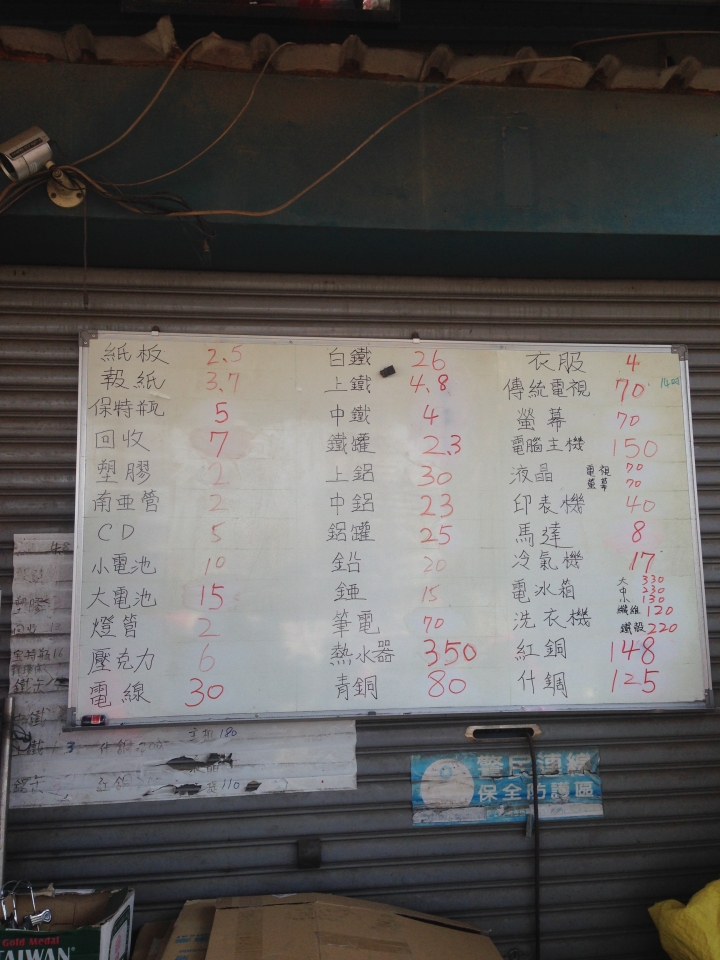 紙板 2.5
報紙 3.7
保特瓶 5
回收 7
塑膠 2
南亜管 2
CD 5
小電池 10
大電池 15
燈管 2
壓克力 6
電線 30
白鐵 26
上鐵 4.8
中鐵 4
鐵罐 2.3
上鋁 30
中鋁 23
鋁罐 25
鉛 20
錏 15
筆電 70
熱水器 350
青銅 80
衣服 4
傳統電視 70
螢幕 70
電腦主機 150
液晶 電視 70
螢幕 70
印表機 40
馬達 8
冷氣機 17
電冰箱 大 330
中 230
小 130
洗衣機 纖維 120
鐵殼 220
紅銅 148
什銅 125
警民連線
保全防護區
Gold Medal
TAIWAN